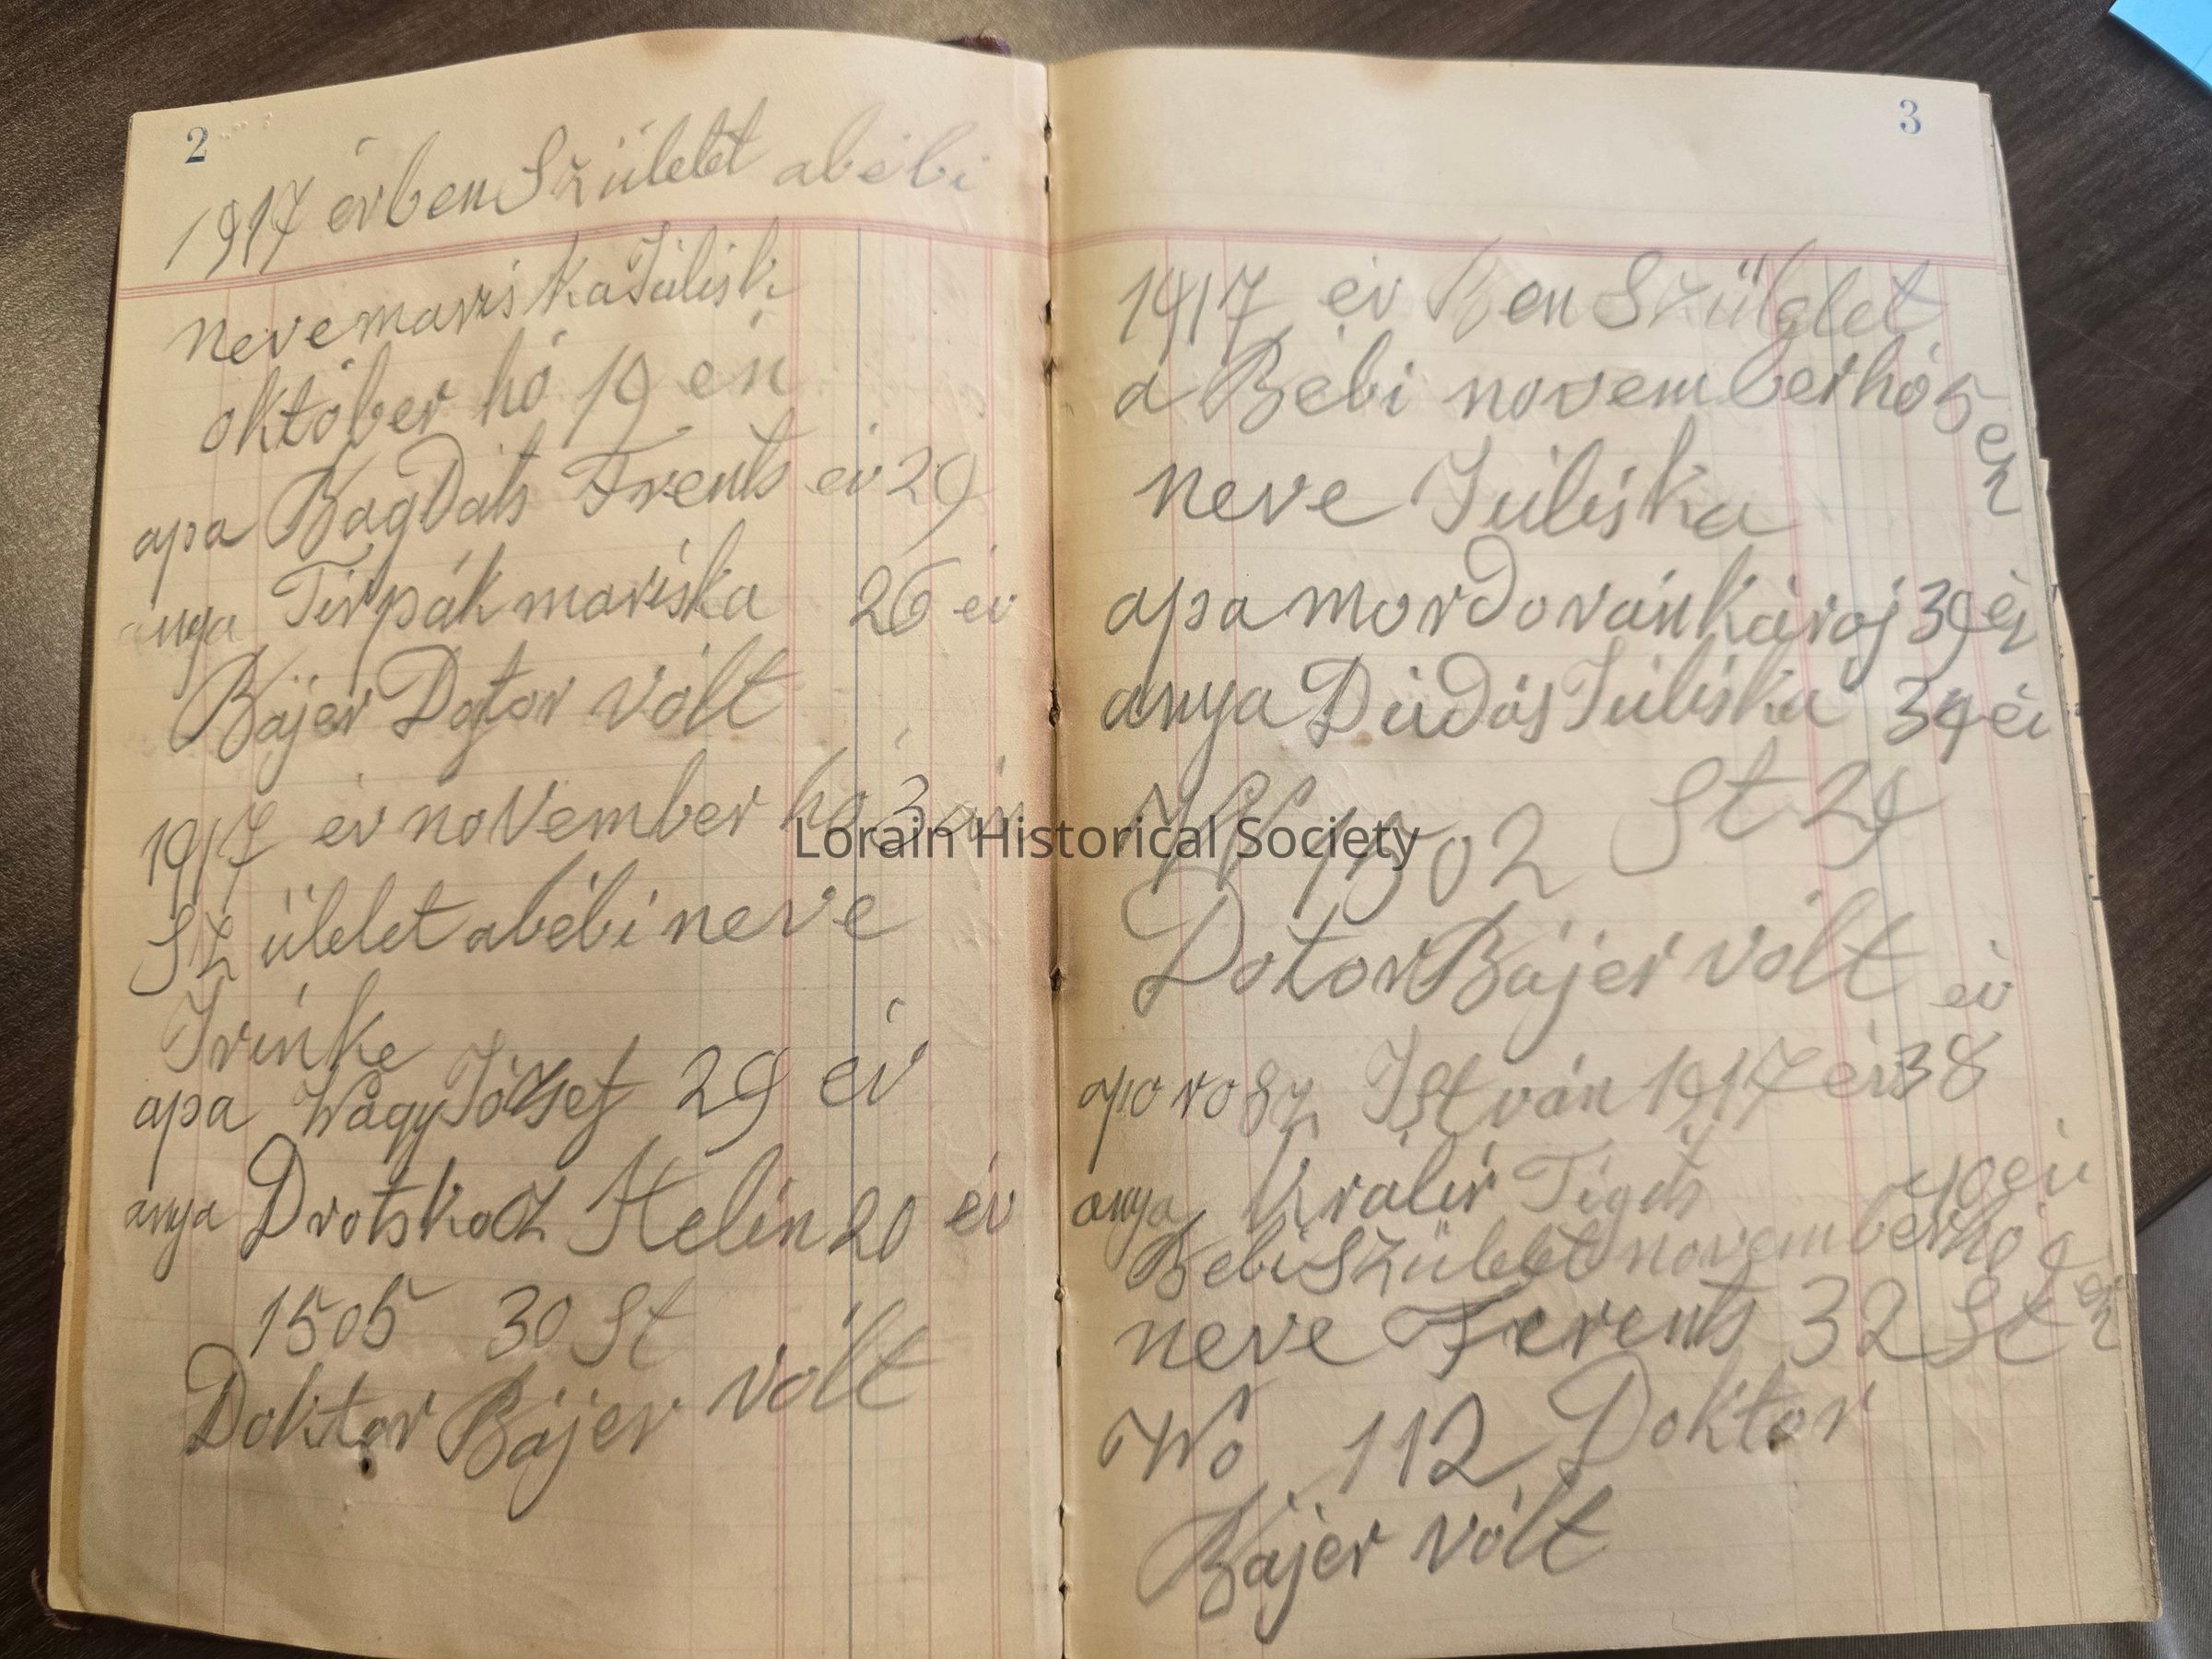 2
1917 évben Születet abébi
neve mariska Júlisk
október hó 19 én
apa BagDats Frents év 29
anya Tirpák mariska 26 év
Bájer Dogtor vólt
1917 év november hó 3 án
Születet abébi neve
Irinke
apa Wagy József 29 év
anya Drotskocz Helén 20 év
1505 30 St
Doktor Bájer vólt
3
1917 év Ben Születet
a Bébi november hó 5 én
neve Júliska
apa morDován Károj 39 év
anya DúDás Júliska 34 év
W 1502 St 29
Dotor Bájer vólt
év
apa orosz István 1917 év 38
anya Králir 40 év
Bebi Született november hó 9 én
neve Ferents 32 St
Wó 112 Doktor
Bájer vólt
Lorain Historical Society